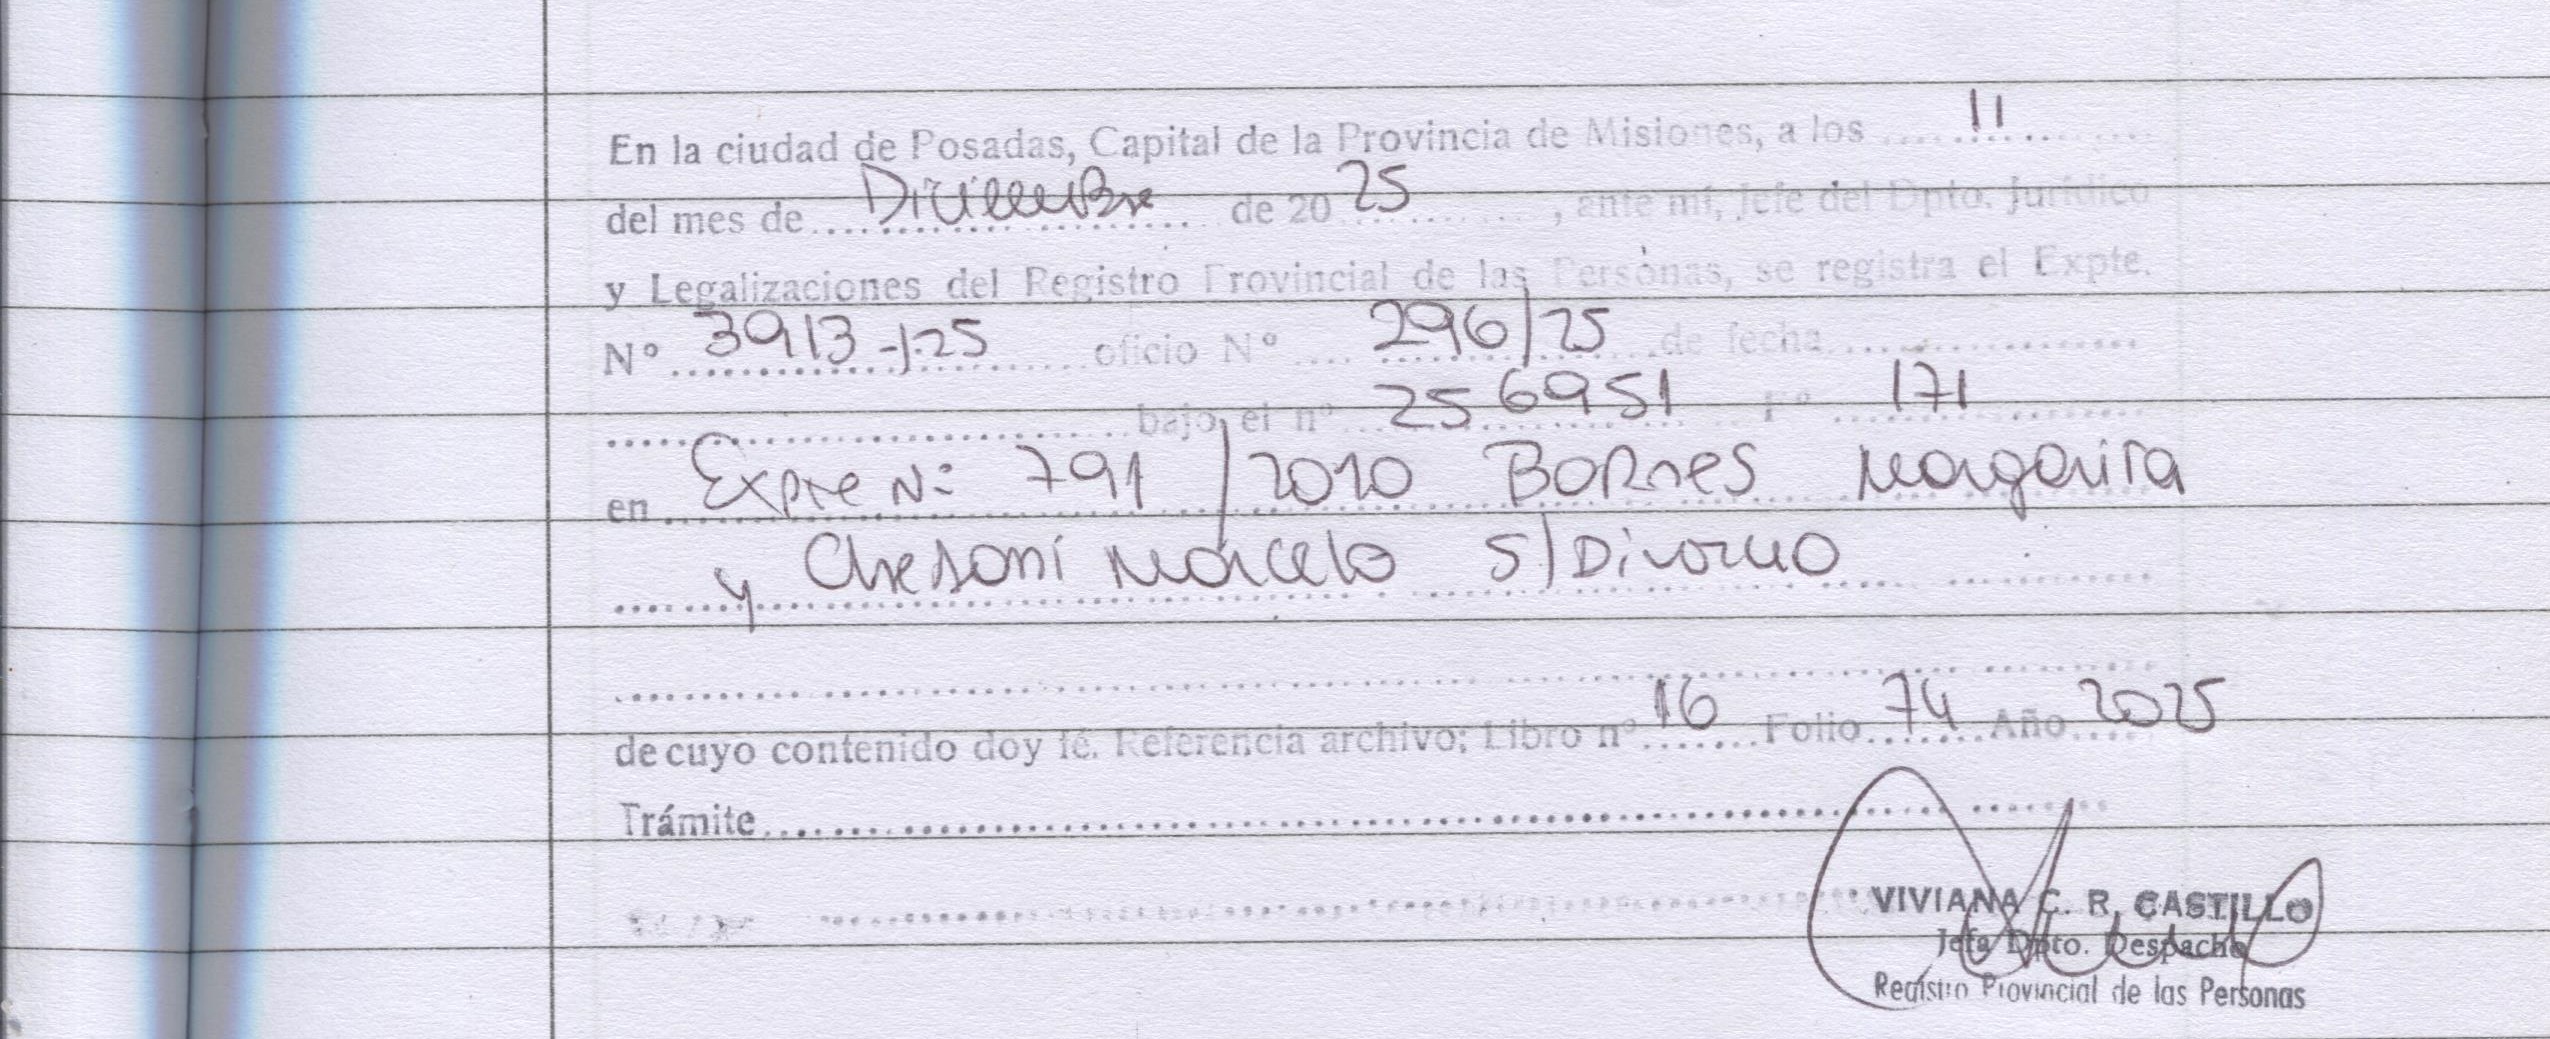 En la ciudad de Posadas, Capital de la Provincia de Misiones, a los ..... 11 .....
del mes de .... Diciembre .... de 20 25 ........, ante mí, Jefe del Dpto. Jurídico
y Legalizaciones del Registro Provincial de las Personas, se registra el Expte.
Nº 3913-J-25 oficio Nº .... 296/25 de fecha....
.... bajo el nº 256951 Fº 171
en Expte Nº 791/2010 Bornes Margarita
y Marcelo S/Divorcio
de cuyo contenido doy fé. Referencia archivo: Libro nº 16 Folio 74 Año 2025
Trámite....
VIVIANA C. R. CASTILLO
Jefa Dpto. Despacho
Registro Provincial de las Personas